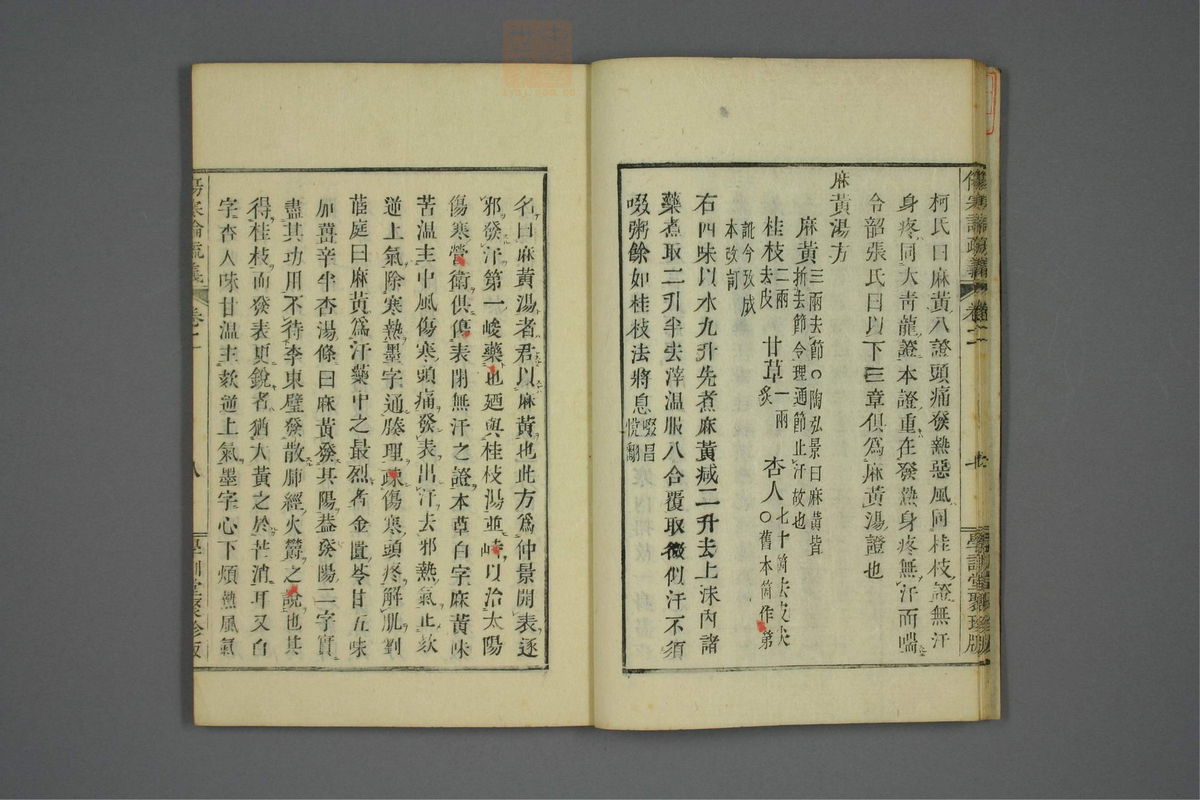 柯氏曰麻黃八證頭痛發熱惡風同桂枝證無汗
身疼同大青龍證本證重在發熱身疼無汗而喘
令韶張氏曰以下三章俱爲麻黃湯證也
麻黃湯方
麻黃三兩去節○陶弘景曰麻黃皆
折去節令理通節止汗故也
桂枝二兩去皮 甘草一兩炙 杏人七十箇去皮尖○舊本箇作第
訛今攷成
本改訂
右四味以水九升先煮麻黃減二升去上沫內諸
藥煮取二升半去滓温服八合覆取微似汗不須
啜粥餘如桂枝法將息啜昌
悅翻
傷寒論疏義 卷二
學訓堂聚珍版
名曰麻黃湯者君以麻黃也此方爲仲景開表逐
邪發汗第一峻藥也廼與桂枝湯並峙以治太陽
傷寒營衛俱傷表閉無汗之證本草白字麻黃味
苦温主中風傷寒頭痛發表出汗去邪熱氣止欬
逆上氣除寒熱墨字通腠理疎傷寒頭疼解肌劉
茝庭曰麻黃爲汗藥中之最烈者金匱苓甘五味
加薑辛半杏湯條曰麻黃發其陽蓋發陽二字實
盡其功用不待李東璧發散肺經火鬱之說也其
得桂枝而發表更銳者猶大黃之於芒消耳又白
字杏人味甘温主欬逆上氣墨字心下煩熱風氣
傷寒論疏義 卷二 八 學訓堂聚珍版